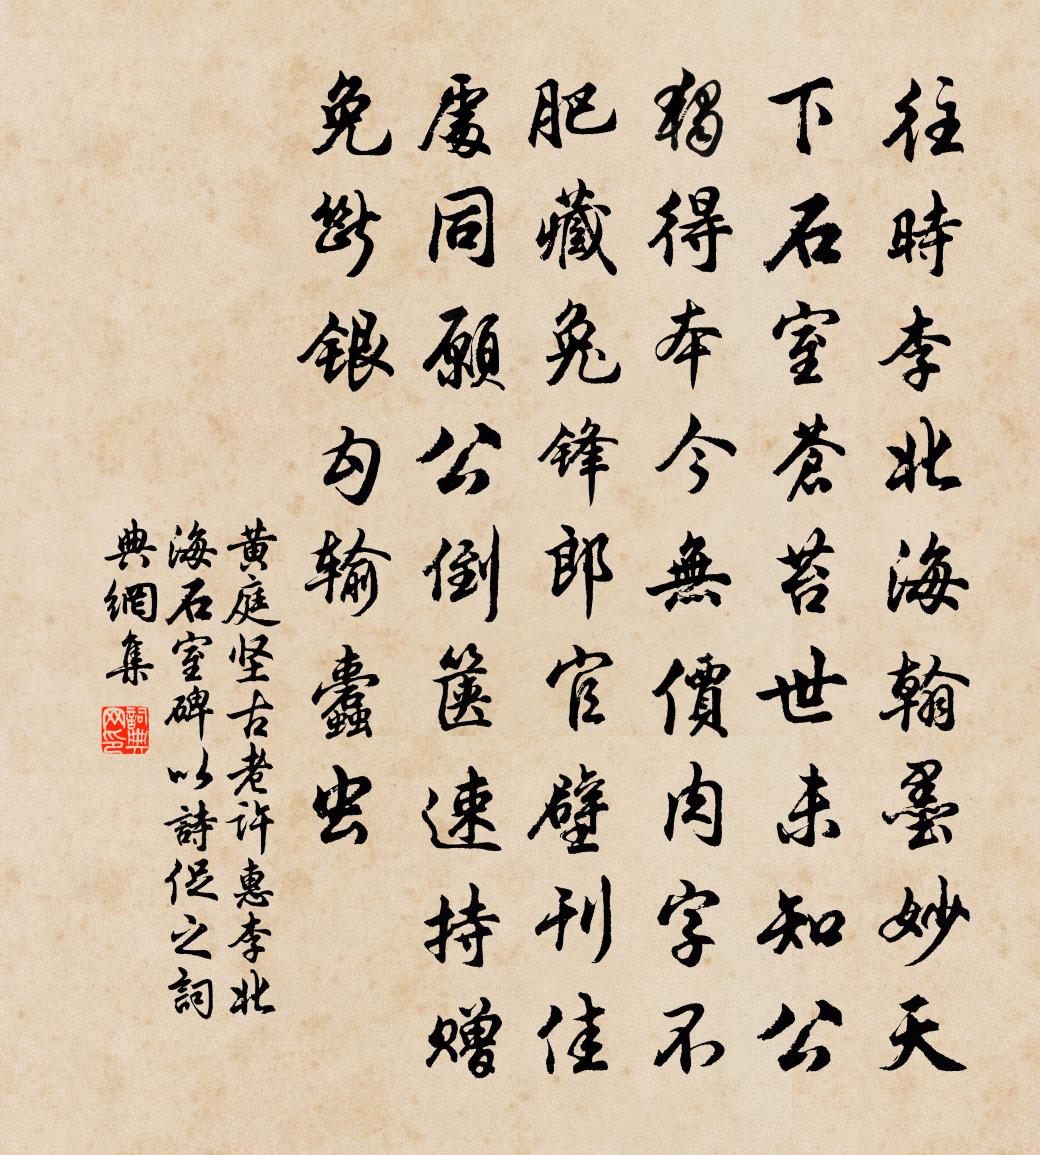 往時李北海翰墨妙天
下石室蒼苔世未知公
獨得本今無價肉字不
肥藏兔鋒郎官壁刊佳
處同願公倒篋速持贈
免斷銀勾輸蠹虫
黄庭坚古老許惠李北
海石室碑以詩促之詞
典網集
詞典网印